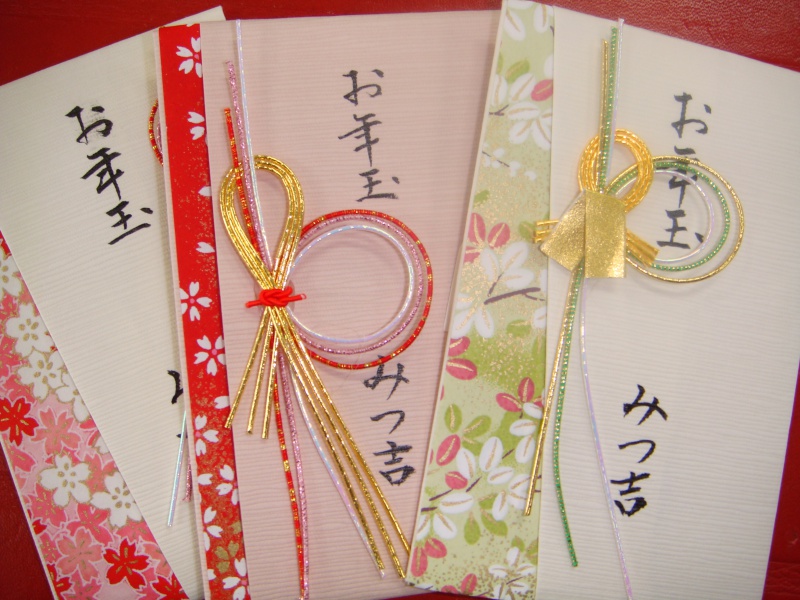 お年玉
お年玉
みつ吉
お年玉
みつ吉